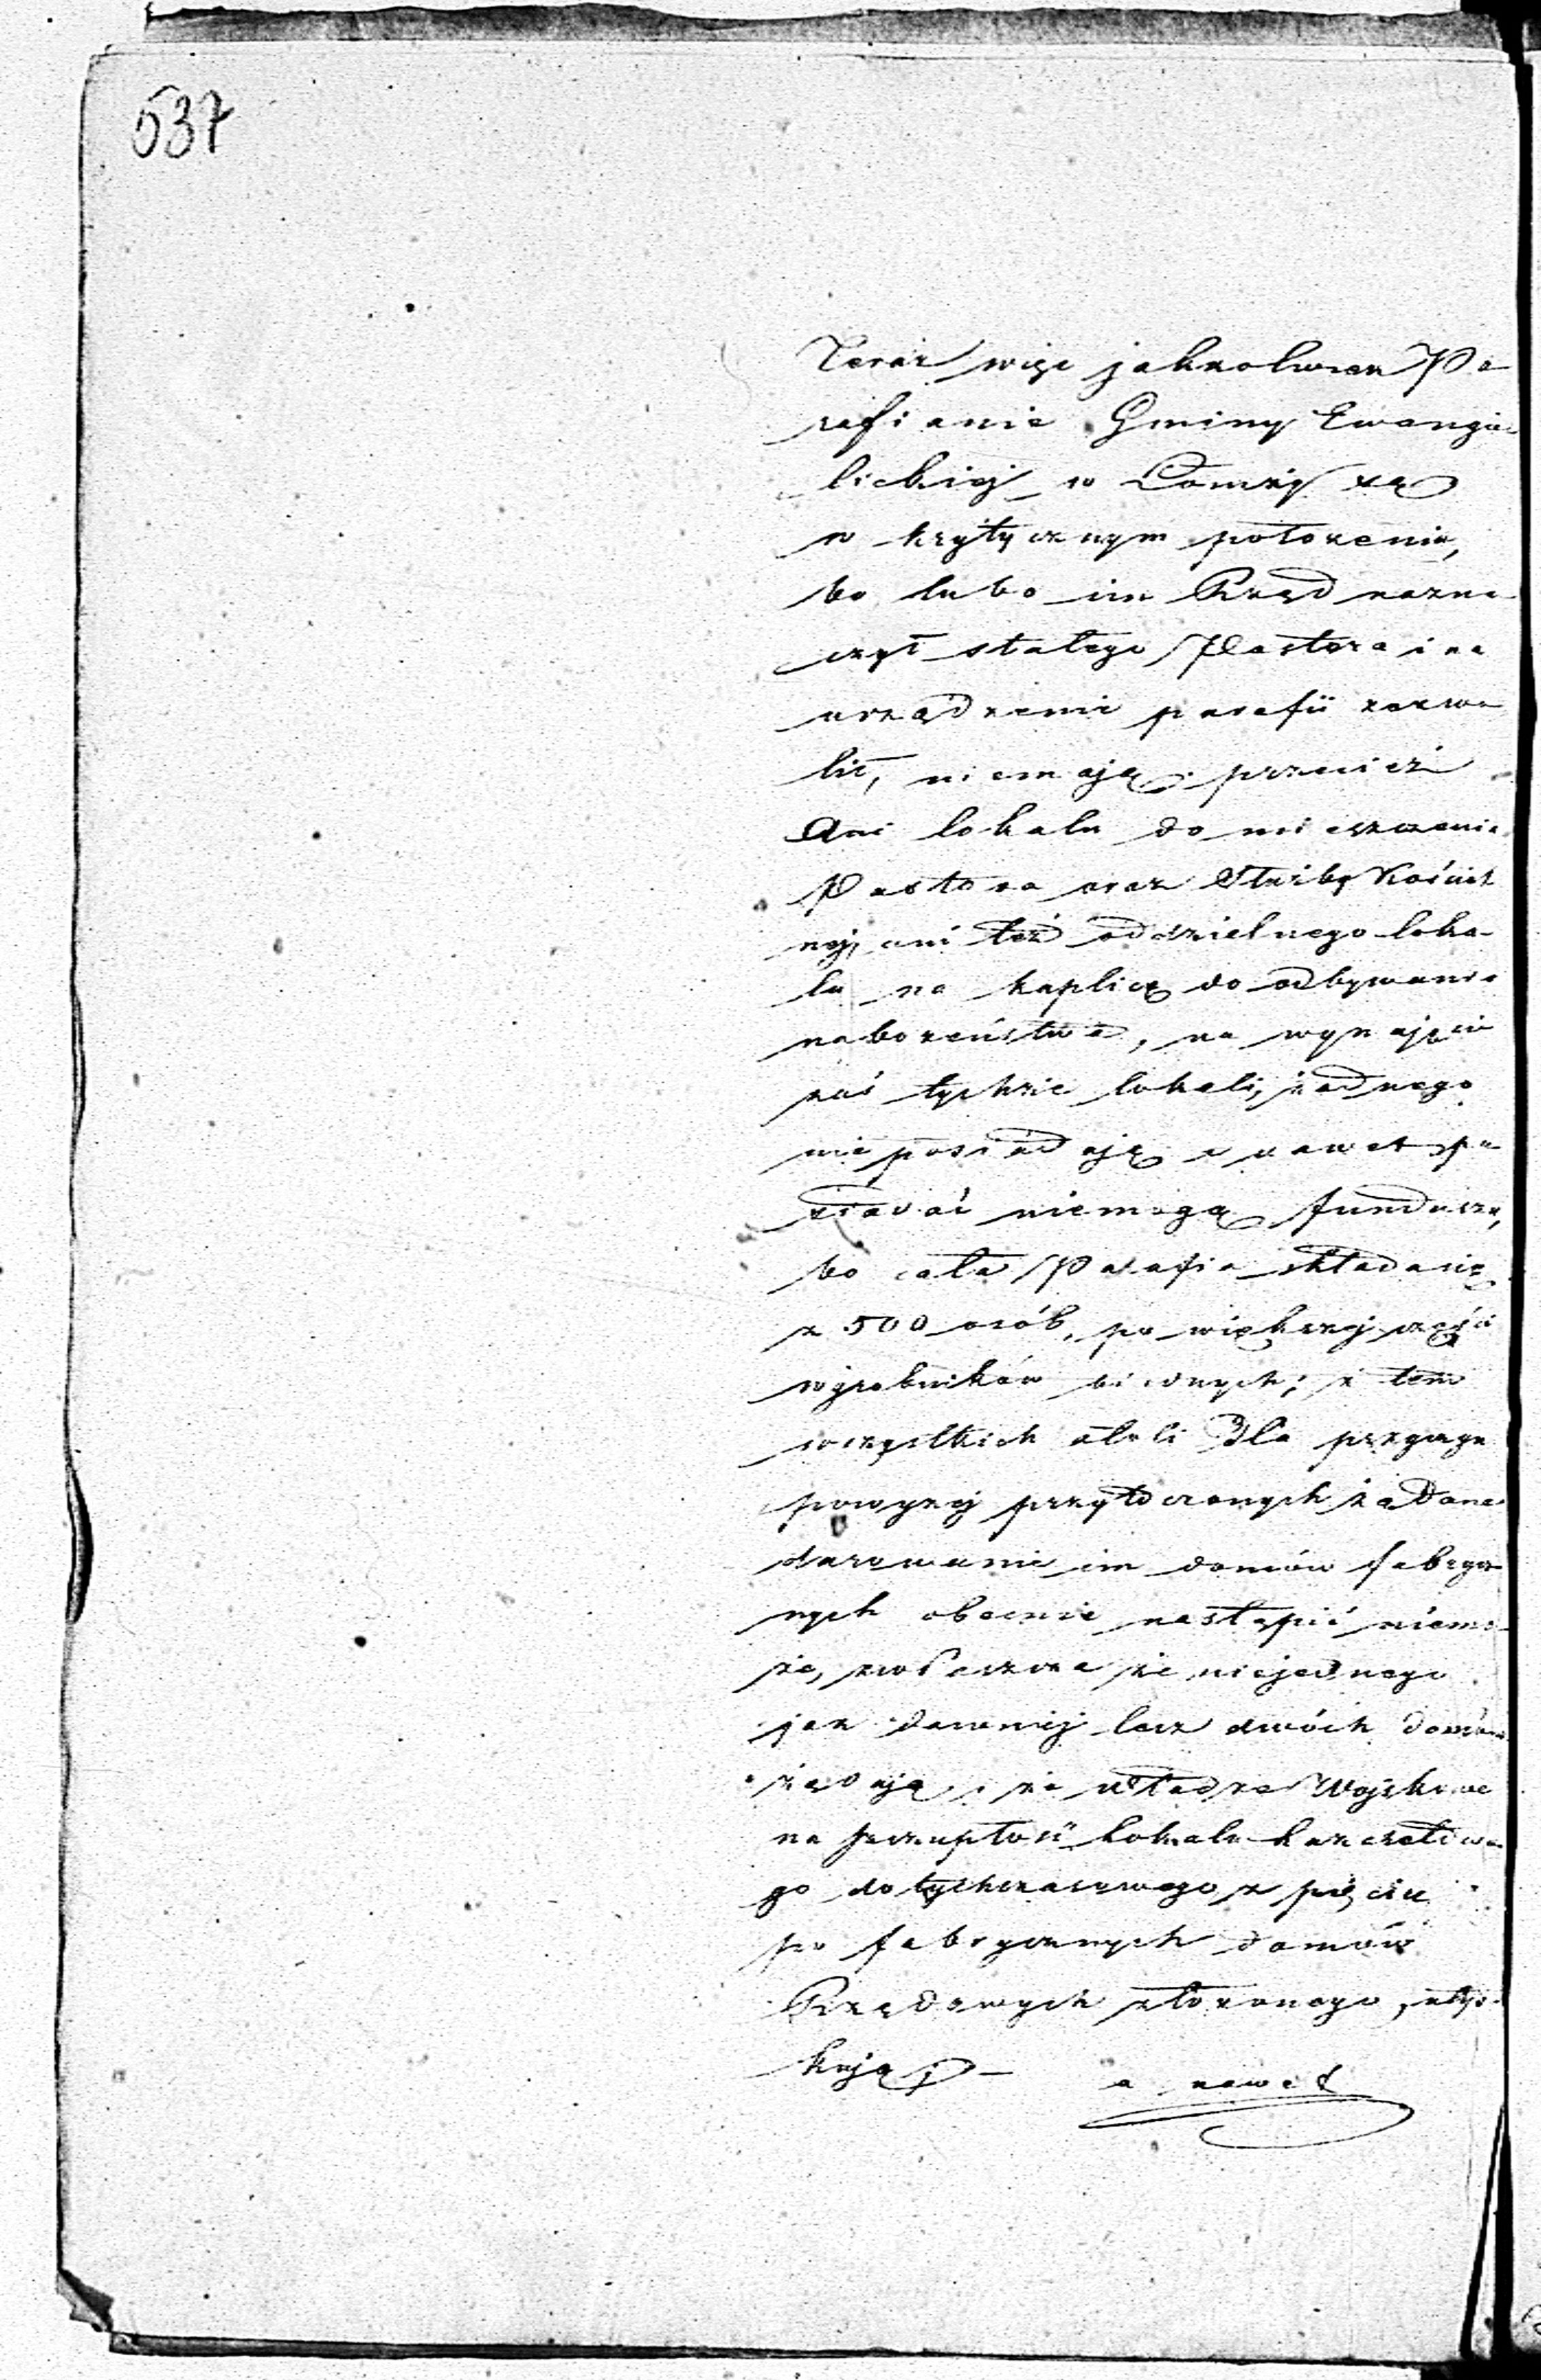 537
Teraz więc jakkolwiek Pa-
rafianie Gminy Ewangie-
lickiej w Łomży są
w krytycznym położeniu,
bo lubo im Rząd nazna-
czył stałego Pastora i na
urządzenie parafii zezwo-
lił, niemają przecież
Ani lokalu do mieszczenia
Pastora oraz Służby Kościel
nej, ani też oddzielnego loka-
lu na kaplicę do odbywania
nabożeństwa, na wynajęcie
zaś tychże lokali, żadnego
nie posiadają a nawet po-
siadać niemogą funduszu,
bo cała Parafia składa się
z 500 osób, po większej części
wyrobników biednych; z tem
wszystkich atoli dla przyczyn
powyżej przytoczonych żądane
darowanie im domów fabrycz-
nych obecnie nastąpić niemo-
że, zwłaszcza że niejednego
jak dawniej lecz dwóch domów
żądają, i że władze Wojskowe
na szczupłość lokalu koszarowe-
go dotychczasowego z pięciu
po fabrycznych domów
Rządowych złożonego, utys-
kują,
a nawet